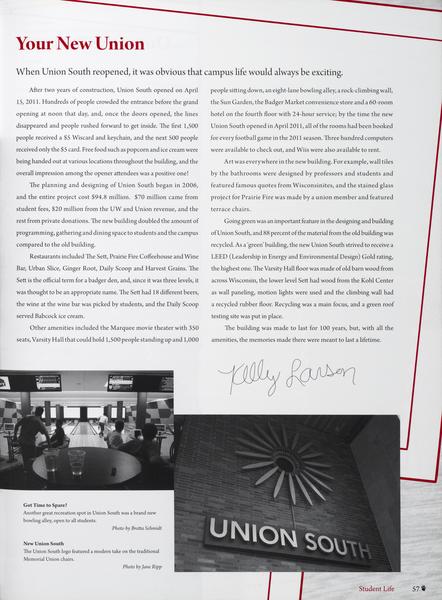 Your New Union
When Union South reopened, it was obvious that campus life would always be exciting.
After two years of construction, Union South opened on April
15, 2011. Hundreds of people crowded the entrance before the grand
opening at noon that day, and, once the doors opened, the lines
disappeared and people rushed forward to get inside. The first 1,500
people received a $5 Wiscard and keychain, and the next 500 people
received only the $5 card. Free food such as popcorn and ice cream were
being handed out at various locations throughout the building, and the
overall impression among the opener attendees was a positive one!
The planning and designing of Union South began in 2006,
and the entire project cost $94.8 million. $70 million came from
student fees, $20 million from the UW and Union revenue, and the
rest from private donations. The new building doubled the amount of
programming, gathering and dining space to students and the campus
compared to the old building.
Restaurants included The Sett, Prairie Fire Coffeehouse and Wine
Bar, Urban Slice, Ginger Root, Daily Scoop and Harvest Grains. The
Sett is the official term for a badger den, and, since it was three levels, it
was thought to be an appropriate name. The Sett had 18 different beers,
the wine at the wine bar was picked by students, and the Daily Scoop
served Babcock ice cream.
Other amenities included the Marquee movie theater with 350
seats, Varsity Hall that could hold 1,500 people standing up and 1,000
people sitting down, an eight-lane bowling alley, a rock-climbing wall,
the Sun Garden, the Badger Market convenience store and a 60-room
hotel on the fourth floor with 24-hour service; by the time the new
Union South opened in April 2011, all of the rooms had been booked
for every football game in the 2011 season. Three hundred computers
were available to check out, and Wiis were also available to rent.
Art was everywhere in the new building. For example, wall tiles
by the bathrooms were designed by professors and students and
featured famous quotes from Wisconsinites, and the stained glass
project for Prairie Fire was made by a union member and featured
terrace chairs.
Going green was an important feature in the designing and building
of Union South, and 88 percent of the material from the old building was
recycled. As a 'green' building, the new Union South strived to receive a
LEED (Leadership in Energy and Environmental Design) Gold rating,
the highest one. The Varsity Hall floor was made of old barn wood from
across Wisconsin, the lower level Sett had wood from the Kohl Center
as wall paneling, motion lights were used and the climbing wall had
a recycled rubber floor. Recycling was a main focus, and a green roof
testing site was put in place.
The building was made to last for 100 years, but, with all the
amenities, the memories made there were meant to last a lifetime.
Kelly Larson
UNION SOUTH
Got Time to Spare?
Another great recreation spot in Union South was a brand new
bowling alley, open to all students.
Photo by Britta Schmidt
New Union South
The Union South logo featured a modern take on the traditional
Memorial Union chairs.
Photo by Jane Ripp
Student Life 57